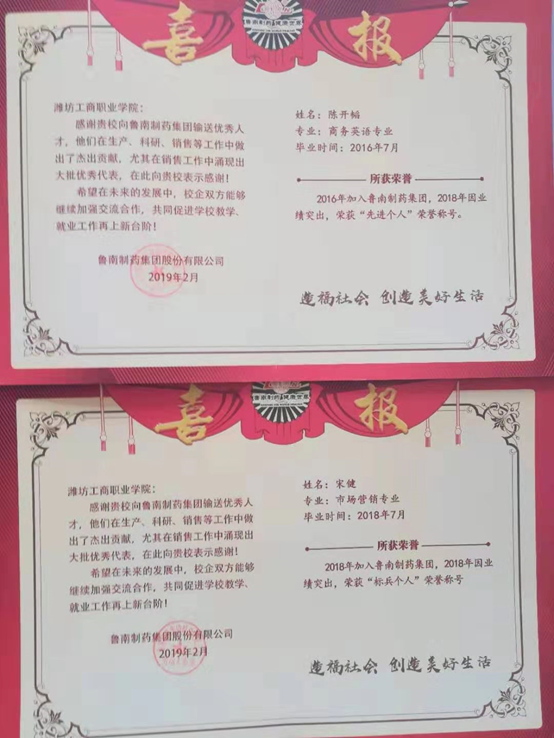 喜报
鲁南制药 健康世界
潍坊工商职业学院：
感谢贵校向鲁南制药集团输送优秀人
才，他们在生产、科研、销售等工作中做
出了杰出贡献，尤其在销售工作中涌现出
大批优秀代表，在此向贵校表示感谢！
希望在未来的发展中，校企双方能够
继续加强交流合作，共同促进学校教学、
就业工作再上新台阶！
鲁南制药集团股份有限公司
2019年2月
姓名：陈开韬
专业：商务英语专业
毕业时间：2016年7月
所获荣誉
2016年加入鲁南制药集团，2018年因业
绩突出，荣获“先进个人”荣誉称号。
造福社会 创造美好生活
喜报
鲁南制药 健康世界
潍坊工商职业学院：
感谢贵校向鲁南制药集团输送优秀人
才，他们在生产、科研、销售等工作中做
出了杰出贡献，尤其在销售工作中涌现出
大批优秀代表，在此向贵校表示感谢！
希望在未来的发展中，校企双方能够
继续加强交流合作，共同促进学校教学、
就业工作再上新台阶！
鲁南制药集团股份有限公司
2019年2月
姓名：宋健
专业：市场营销专业
毕业时间：2018年7月
所获荣誉
2018年加入鲁南制药集团，2018年因业
绩突出，荣获“标兵个人”荣誉称号
造福社会 创造美好生活